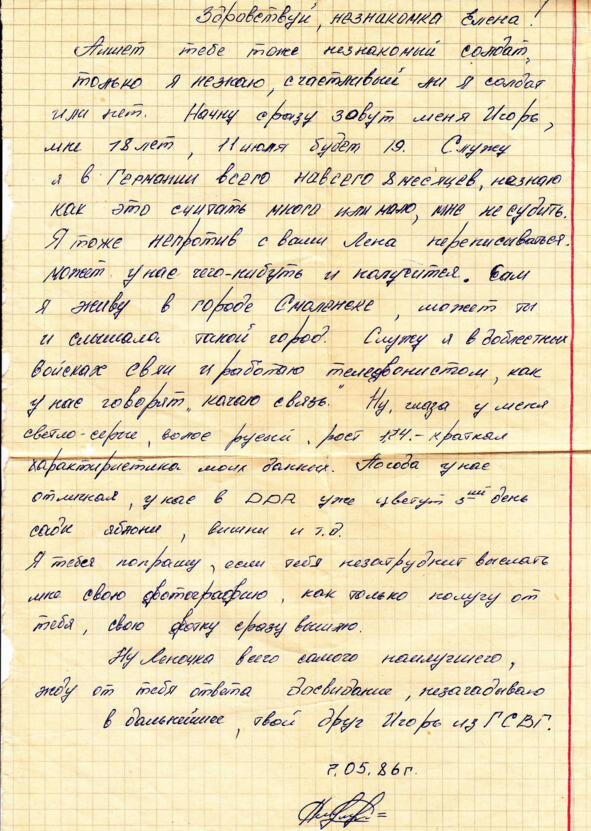 Здравствуй, незнакомка Елена!
Пишет тебе тоже незнакомый солдат,
только я незнаю, счастливый ли я солдат
или нет. Начну сразу зовут меня Игорь,
мне 18 лет, 11 июля будет 19. Служу
я в Германии всего навсего 8 месяцев, незнаю
как это считать много или мало, мне не судить.
Я тоже непротив с вами Лена переписываться.
может у нас чего-нибуть и получится. Сам
я живу в городе Смоленске, может ты
и слышала такой город. Служу я в доблестных
войсках связи и работаю телефонистом, как
у нас говорят „качаю связь." Ну, глаза у меня
светло-серые, волос русый, рост 174.- краткая
характиристика моих данных. Погода у нас
отличная, у нас в DDR уже цветут 3ий день
сады яблони, вишни и т.д.
Я тебя попрашу, если тебя незатруднит выслать
мне свою фотографию, как только получу от
тебя, свою фотку сразу вышлю.
Ну Леночка всего самого наилучшего,
жду от тебя ответа досвидание, незагадываю
в дальнейшее, твой друг Игорь из ГСВГ.
7.05.86г.